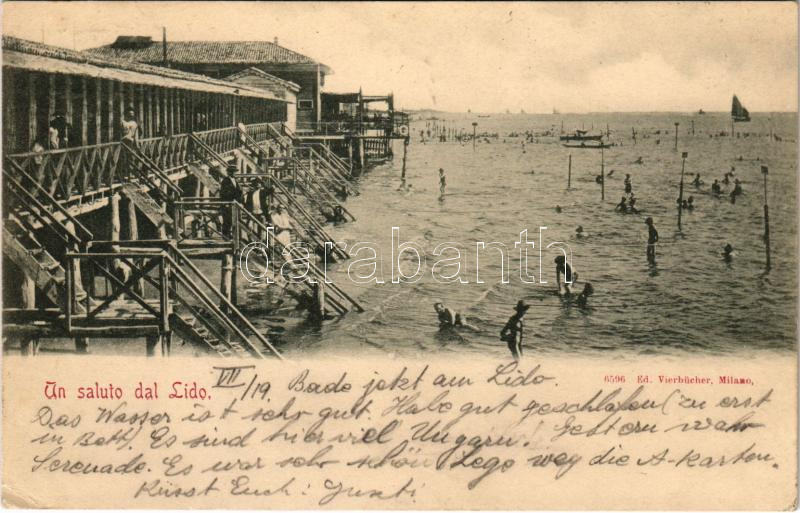 darabanth
Un saluto dal Lido.
6596 Ed. Vierbücher, Milano.
VII/19 Bade jetzt am Lido.
Das Wasser ist sehr gut. Habe gut geschlafen (zu erst
in Bett). Es sind hier viel Ungarn! Gestern wahr
Serenade. Es war sehr schön. Lege weg die A-karten.
Küsst Euch: Juxti